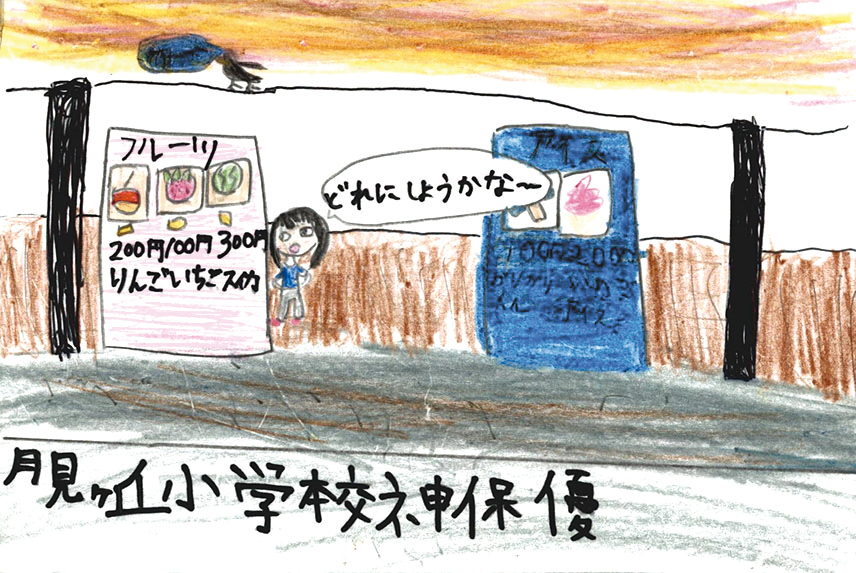 フルーツ
200円100円300円
りんごいちごスイカ
どれにしようかな〜
アイス
100円200円
月見ヶ丘小学校神保優